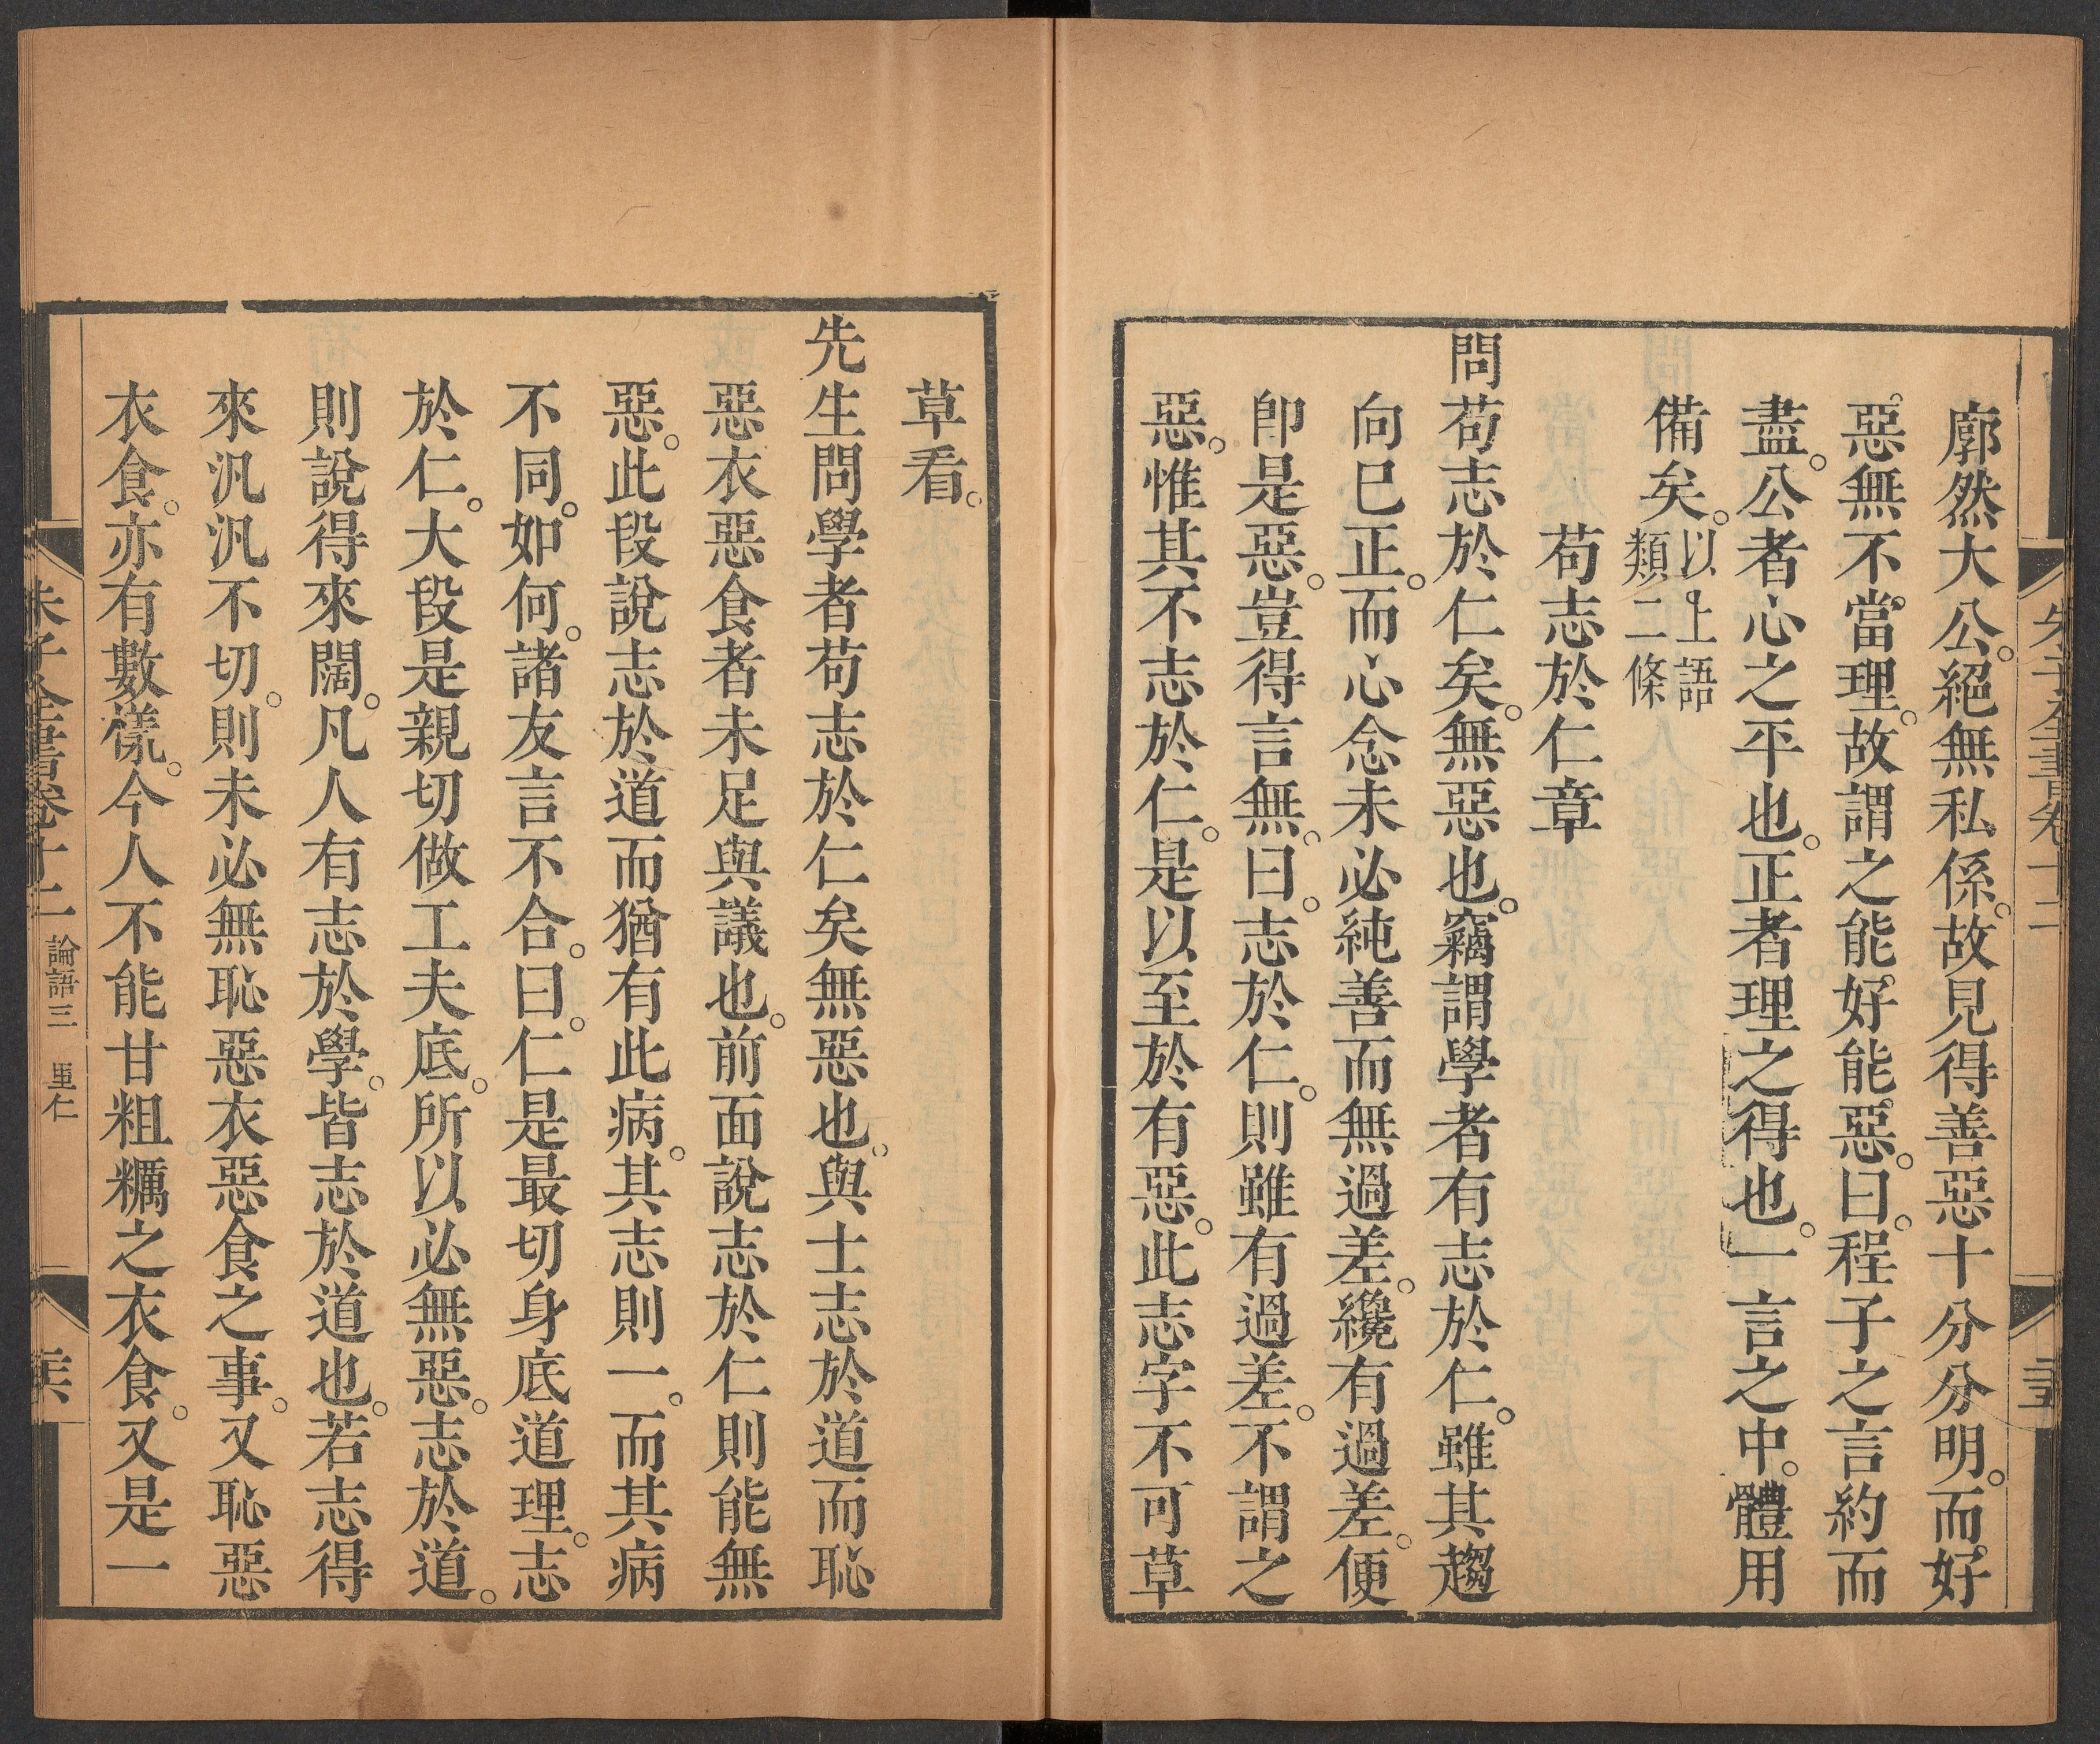 朱子全書卷十二
廓然大公。絕無私係。故見得善惡十分分明。而好
惡無不當理。故謂之能好能惡。曰。程子之言約而
盡。公者心之平也。正者理之得也。一言之中。體用
備矣。以上語
類二條
苟志於仁章
問苟志於仁矣。無惡也。竊謂學者有志於仁。雖其趨
向已正。而心念未必純善而無過差。纔有過差。便
卽是惡。豈得言無。曰。志於仁。則雖有過差。不謂之
惡。惟其不志於仁。是以至於有惡。此志字不可草
草看。
先生問學者苟志於仁矣無惡也。與士志於道而恥
惡衣惡食者未足與議也。前面說志於仁則能無
惡。此段說志於道而猶有此病。其志則一。而其病
不同。如何。諸友言不合。曰。仁是最切身底道理。志
於仁。大段是親切做工夫底。所以必無惡。志於道。
則說得來闊。凡人有志於學。皆志於道也。若志得
來汎汎不切。則未必無恥惡衣惡食之事。又恥惡
衣食。亦有數樣。今人不能甘粗糲之衣食。又是一
朱子全書卷十二 論語三 里仁